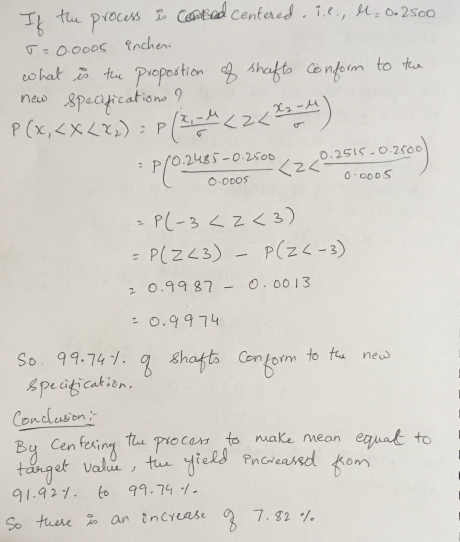 If the process is centered. i.e., μ = 0.2500
σ = 0.0005 inches
what is the proportion of shafts conform to the
new specifications ?
P(x₁<X<x₂) : P((x₁-μ)/σ < Z < (x₂-μ)/σ)
= P((0.2485-0.2500)/0.0005 < Z < (0.2515-0.2500)/0.0005)
= P(-3 < Z < 3)
= P(Z<3) - P(Z<-3)
= 0.9987 - 0.0013
= 0.9974
So. 99.74%. of shafts conform to the new
specification.
Conclusion:-
By Centering the process to make mean equal to
target value, the yield increased from
91.92%. to 99.74%.
So there is an increase of 7.82%.